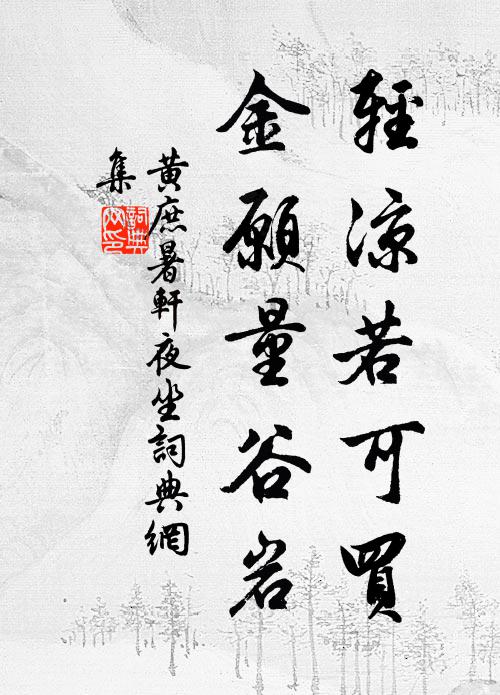 輕涼若可買
金願量谷岩
黃庶暑軒夜坐詞典網
集
詞典网印